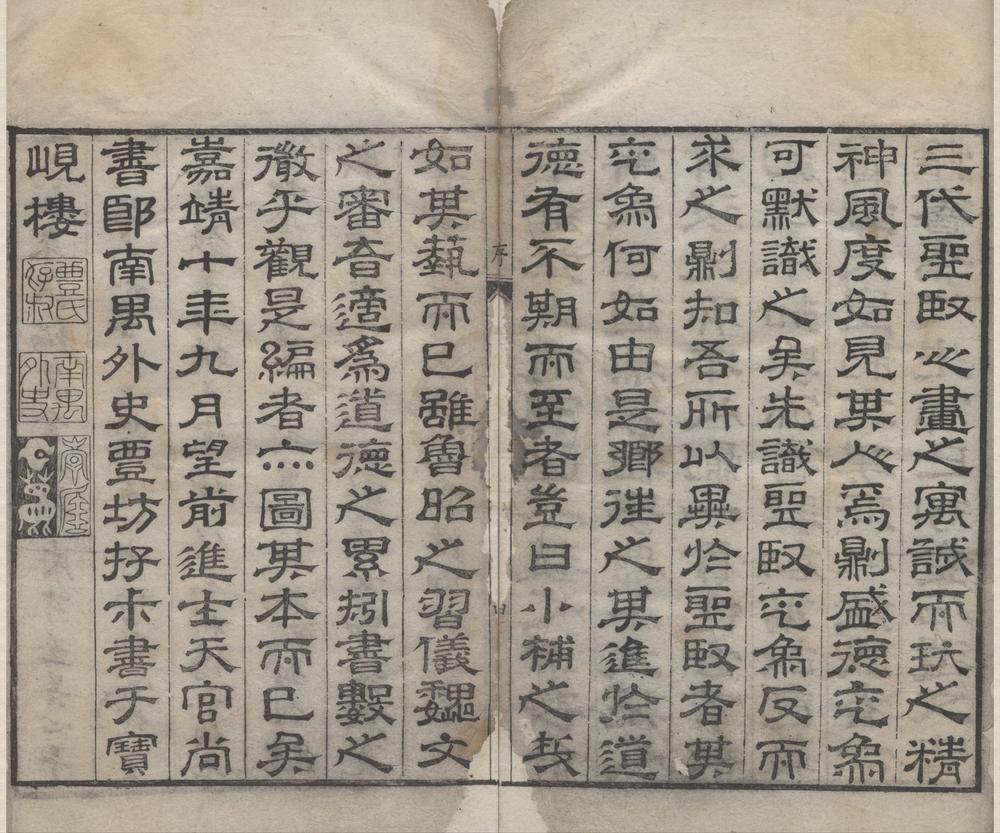 三代聖臤心畫之寓誠而玩之精
神風度如見其人焉則盛德㞢象
可默識之矣先識聖臤㞢象反而
求之則知吾所以異於聖臤者其
㞢象何如由是鄉往之其進於道
德有不期而至者豈曰小補之哉
序
四
如其埶而已雖魯昭之習儀魏文
之審音適為道德之累矧書數之
微乎觀是編者亦圖其本而已矣
嘉靖十年九月望前進士天官尚
書郎南禺外史豐坊存尗書于寶
峴樓
豐氏存叔
南禺外史